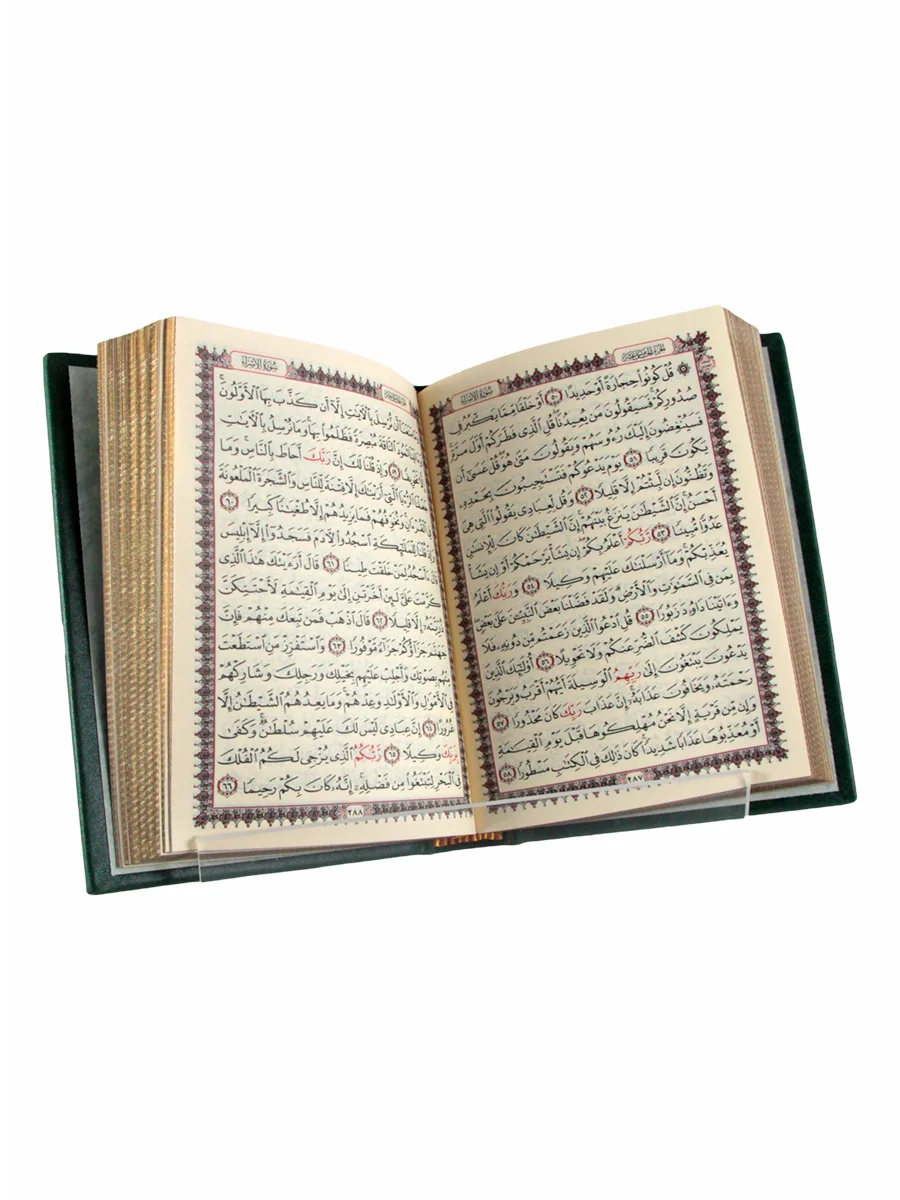 الجزء الخامس عشر
سورة الإسراء
۞ قُلْ كُونُوا۟ حِجَارَةً أَوْ حَدِيدًا ٥٠ أَوْ خَلْقًا مِّمَّا يَكْبُرُ فِى
صُدُورِكُمْ فَسَيَقُولُونَ مَن يُعِيدُنَا قُلِ ٱلَّذِى فَطَرَكُمْ أَوَّلَ مَرَّةٍ
فَسَيُنْغِضُونَ إِلَيْكَ رُءُوسَهُمْ وَيَقُولُونَ مَتَىٰ هُوَ قُلْ عَسَىٰٓ أَن
يَكُونَ قَرِيبًا ٥١ يَوْمَ يَدْعُوكُمْ فَتَسْتَجِيبُونَ بِحَمْدِهِۦ
وَتَظُنُّونَ إِن لَّبِثْتُمْ إِلَّا قَلِيلًا ٥٢ وَقُل لِّعِبَادِى يَقُولُوا۟ ٱلَّتِى هِىَ
أَحْسَنُ إِنَّ ٱلشَّيْطَٰنَ يَنزَغُ بَيْنَهُمْ إِنَّ ٱلشَّيْطَٰنَ كَانَ لِلْإِنسَٰنِ
عَدُوًّا مُّبِينًا ٥٣ رَّبُّكُمْ أَعْلَمُ بِكُمْ إِن يَشَأْ يَرْحَمْكُمْ أَوْ إِن يَشَأْ
يُعَذِّبْكُمْ وَمَآ أَرْسَلْنَٰكَ عَلَيْهِمْ وَكِيلًا ٥٤ وَرَبُّكَ أَعْلَمُ
بِمَن فِى ٱلسَّمَٰوَٰتِ وَٱلْأَرْضِ وَلَقَدْ فَضَّلْنَا بَعْضَ ٱلنَّبِيِّـۧنَ عَلَىٰ بَعْضٍ
وَءَاتَيْنَا دَاوُۥدَ زَبُورًا ٥٥ قُلِ ٱدْعُوا۟ ٱلَّذِينَ زَعَمْتُم مِّن دُونِهِۦ فَلَا
يَمْلِكُونَ كَشْفَ ٱلضُّرِّ عَنكُمْ وَلَا تَحْوِيلًا ٥٦ أُو۟لَٰٓئِكَ ٱلَّذِينَ
يَدْعُونَ يَبْتَغُونَ إِلَىٰ رَبِّهِمُ ٱلْوَسِيلَةَ أَيُّهُمْ أَقْرَبُ وَيَرْجُونَ
رَحْمَتَهُۥ وَيَخَافُونَ عَذَابَهُۥٓ إِنَّ عَذَابَ رَبِّكَ كَانَ مَحْذُورًا ٥٧
وَإِن مِّن قَرْيَةٍ إِلَّا نَحْنُ مُهْلِكُوهَا قَبْلَ يَوْمِ ٱلْقِيَٰمَةِ
أَوْ مُعَذِّبُوهَا عَذَابًا شَدِيدًا كَانَ ذَٰلِكَ فِى ٱلْكِتَٰبِ مَسْطُورًا ٥٨
٢٨٧
سورة الإسراء
مَنَعَنَآ أَن نُّرْسِلَ بِٱلْءَايَٰتِ إِلَّآ أَن كَذَّبَ بِهَا ٱلْأَوَّلُونَ
ثَمُودَ ٱلنَّاقَةَ مُبْصِرَةً فَظَلَمُوا۟ بِهَا وَمَا نُرْسِلُ بِٱلْءَايَٰتِ
تَخْوِيفًا ٥٩ وَإِذْ قُلْنَا لَكَ إِنَّ رَبَّكَ أَحَاطَ بِٱلنَّاسِ وَمَا
ٱلرُّءْيَا ٱلَّتِىٓ أَرَيْنَٰكَ إِلَّا فِتْنَةً لِّلنَّاسِ وَٱلشَّجَرَةَ ٱلْمَلْعُونَةَ
ٱلْقُرْءَانِ وَنُخَوِّفُهُمْ فَمَا يَزِيدُهُمْ إِلَّا طُغْيَٰنًا كَبِيرًا ٦٠
قُلْنَا لِلْمَلَٰٓئِكَةِ ٱسْجُدُوا۟ لِءَادَمَ فَسَجَدُوٓا۟ إِلَّآ إِبْلِيسَ
ءَأَسْجُدُ لِمَنْ خَلَقْتَ طِينًا ٦١ قَالَ أَرَءَيْتَكَ هَٰذَا ٱلَّذِى
كَرَّمْتَ عَلَىَّ لَئِنْ أَخَّرْتَنِ إِلَىٰ يَوْمِ ٱلْقِيَٰمَةِ لَأَحْتَنِكَنَّ
ذُرِّيَّتَهُۥٓ إِلَّا قَلِيلًا ٦٢ قَالَ ٱذْهَبْ فَمَن تَبِعَكَ مِنْهُمْ فَإِنَّ
جَهَنَّمَ جَزَآؤُكُمْ جَزَآءً مَّوْفُورًا ٦٣ وَٱسْتَفْزِزْ مَنِ ٱسْتَطَعْتَ
مِنْهُم بِصَوْتِكَ وَأَجْلِبْ عَلَيْهِم بِخَيْلِكَ وَرَجِلِكَ وَشَارِكْهُمْ
فِى ٱلْأَمْوَٰلِ وَٱلْأَوْلَٰدِ وَعِدْهُمْ وَمَا يَعِدُهُمُ ٱلشَّيْطَٰنُ إِلَّا
غُرُورًا ٦٤ إِنَّ عِبَادِى لَيْسَ لَكَ عَلَيْهِمْ سُلْطَٰنٌ وَكَفَىٰ
بِرَبِّكَ وَكِيلًا ٦٥ رَّبُّكُمُ ٱلَّذِى يُزْجِى لَكُمُ ٱلْفُلْكَ
فِى ٱلْبَحْرِ لِتَبْتَغُوا۟ مِن فَضْلِهِۦٓ إِنَّهُۥ كَانَ بِكُمْ رَحِيمًا ٦٦
٢٨٨